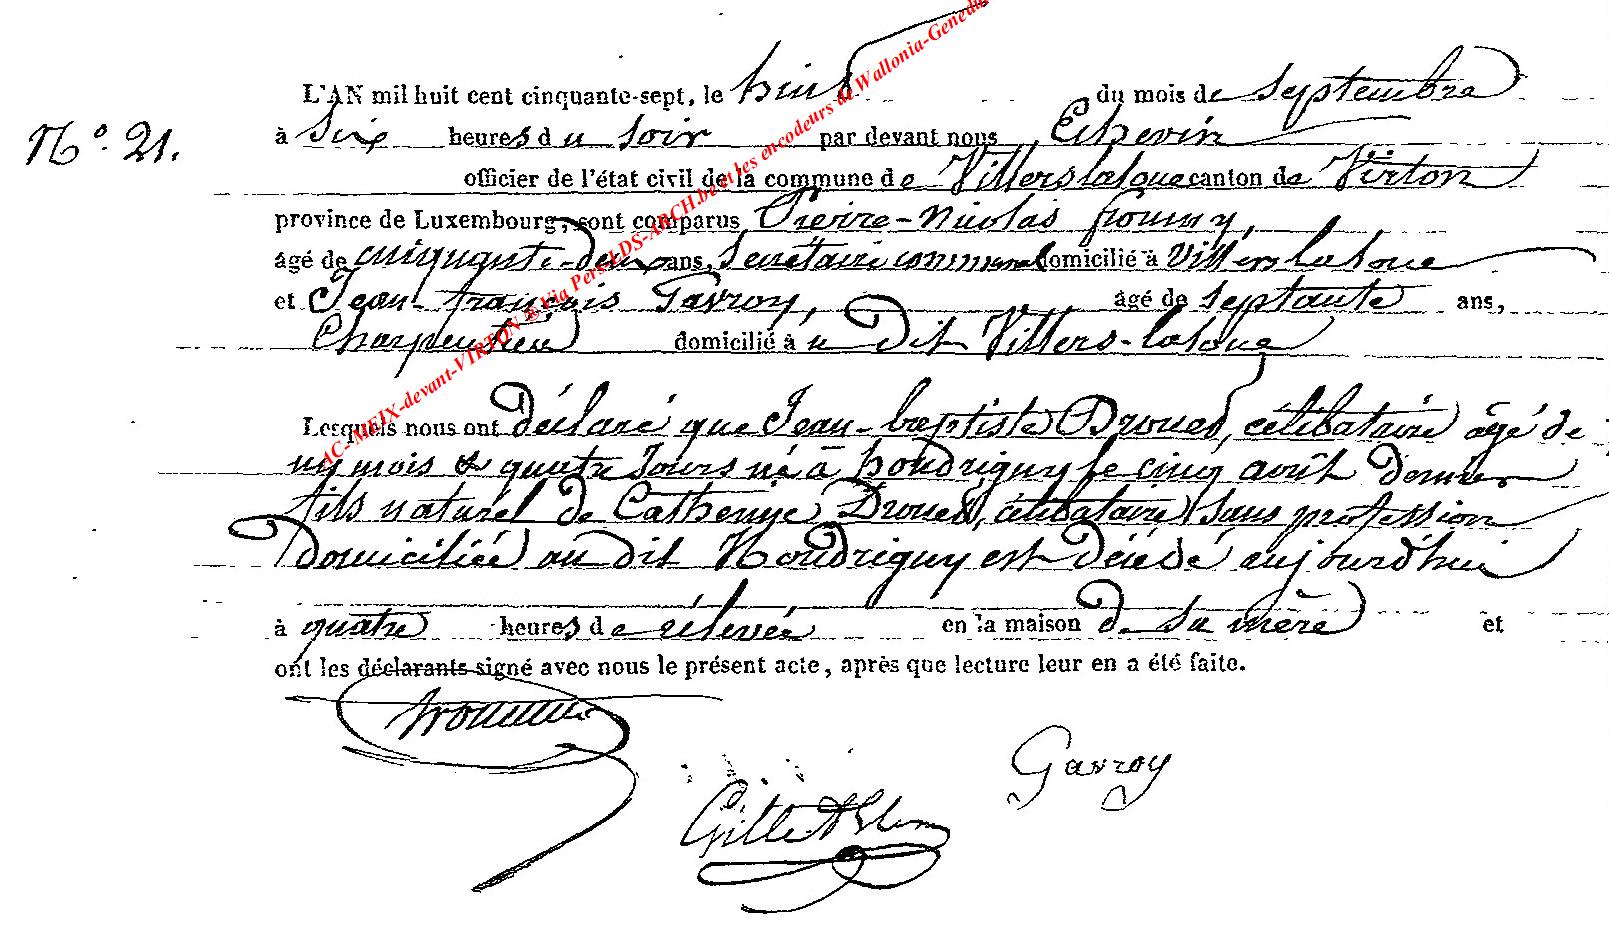 L'AN mil huit cent cinquante-sept, le huit du mois de Septembre
N° 21.
à Six heures du soir par devant nous Echevin
officier de l'état civil de la commune de Villers laloue canton de Virton
province de Luxembourg, sont comparus Pierre-Nicolas
âgé de cinquante-deux ans, Secrétaire communal domicilié à Villers laloue
et Jean-françois Gavroy, âgé de septante ans,
Charpentier domicilié à u Dit Villers-laloue
Lesquels nous ont déclaré que Jean-baptiste Drouet, célibataire âgé de
un mois & quatre jours né à houdrigny le cinq août dernier
fils naturel de Catherine Drouet, célibataire sans profession
Domiciliée au dit Houdrigny est décédé aujourd'hui
à quatre heures de rélevée en la maison de sa mère et
ont les déclarants signé avec nous le présent acte, après que lecture leur en a été faite.
Gavroy
AC-MEIX-devant-VIRTON & Via Pers LDS-ARCH.be et les encodeurs de Wallonia-Genedu